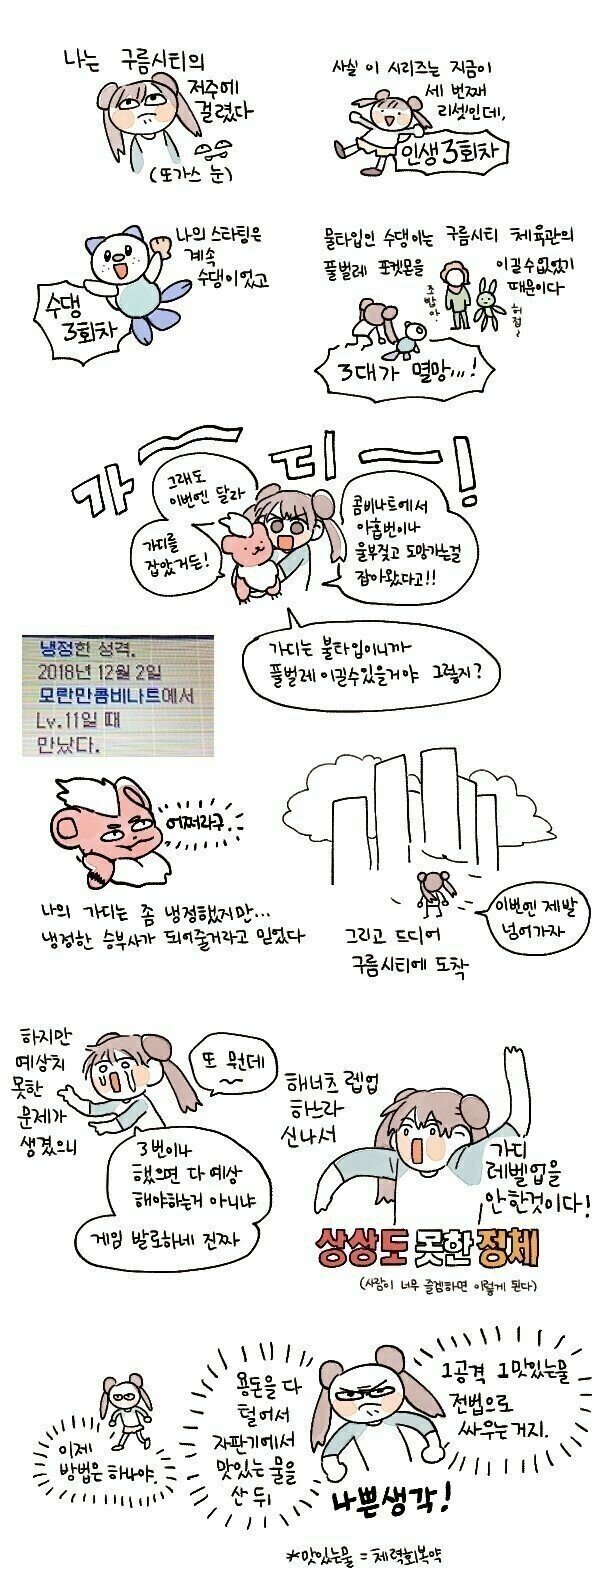 나는 구름시티의
저주에
걸렸다
(또가스 눈)
사실 이 시리즈는 지금이
세 번째
리셋인데,
인생 3회차
나의 스타팅은
계속
수댕이였고
수댕
3회차
물타입인 수댕이는 구름시티 체육관의
풀벌레 포켓몬을 이길 수 없었기
때문이다
초밥아..
허접~
3대가 멸망...!
가ㅡ디ㅡ!
그래도
이번엔 달라
가디를
잡았거든!
콤비나트에서
아홉번이나
울부짖고 도망가는걸
잡아왔다고!!
가디는 불타입이니까
풀벌레 이길수있을거야 그렇지?
냉정한 성격.
2018년 12월 2일
모란만콤비나트에서
Lv.11일 때
만났다.
어쩌라구.
나의 가디는 좀 냉정했지만...
냉정한 승부사가 되어줄거라고 믿었다
이번엔 제발
넘어가자
그리고 드디어
구름시티에 도착
하지만
예상치
못한
문제가
생겼으니
또 뭔데
3번이나
했으면 다 예상
해야하는거 아니냐
게임 발로하네 진짜
해너츠 렙업
하느라
신나서
가디
레벨업을
안한것이다!
상상도 못한 정체
(사람이 너무 즐겜하면 이렇게 된다)
이제
방법은 하나야.
용돈을 다
털어서
자판기에서
맛있는 물을
산 뒤
1공격 1맛있는물
전법으로
싸우는거지.
나쁜생각!
*맛있는물 = 체력회복약